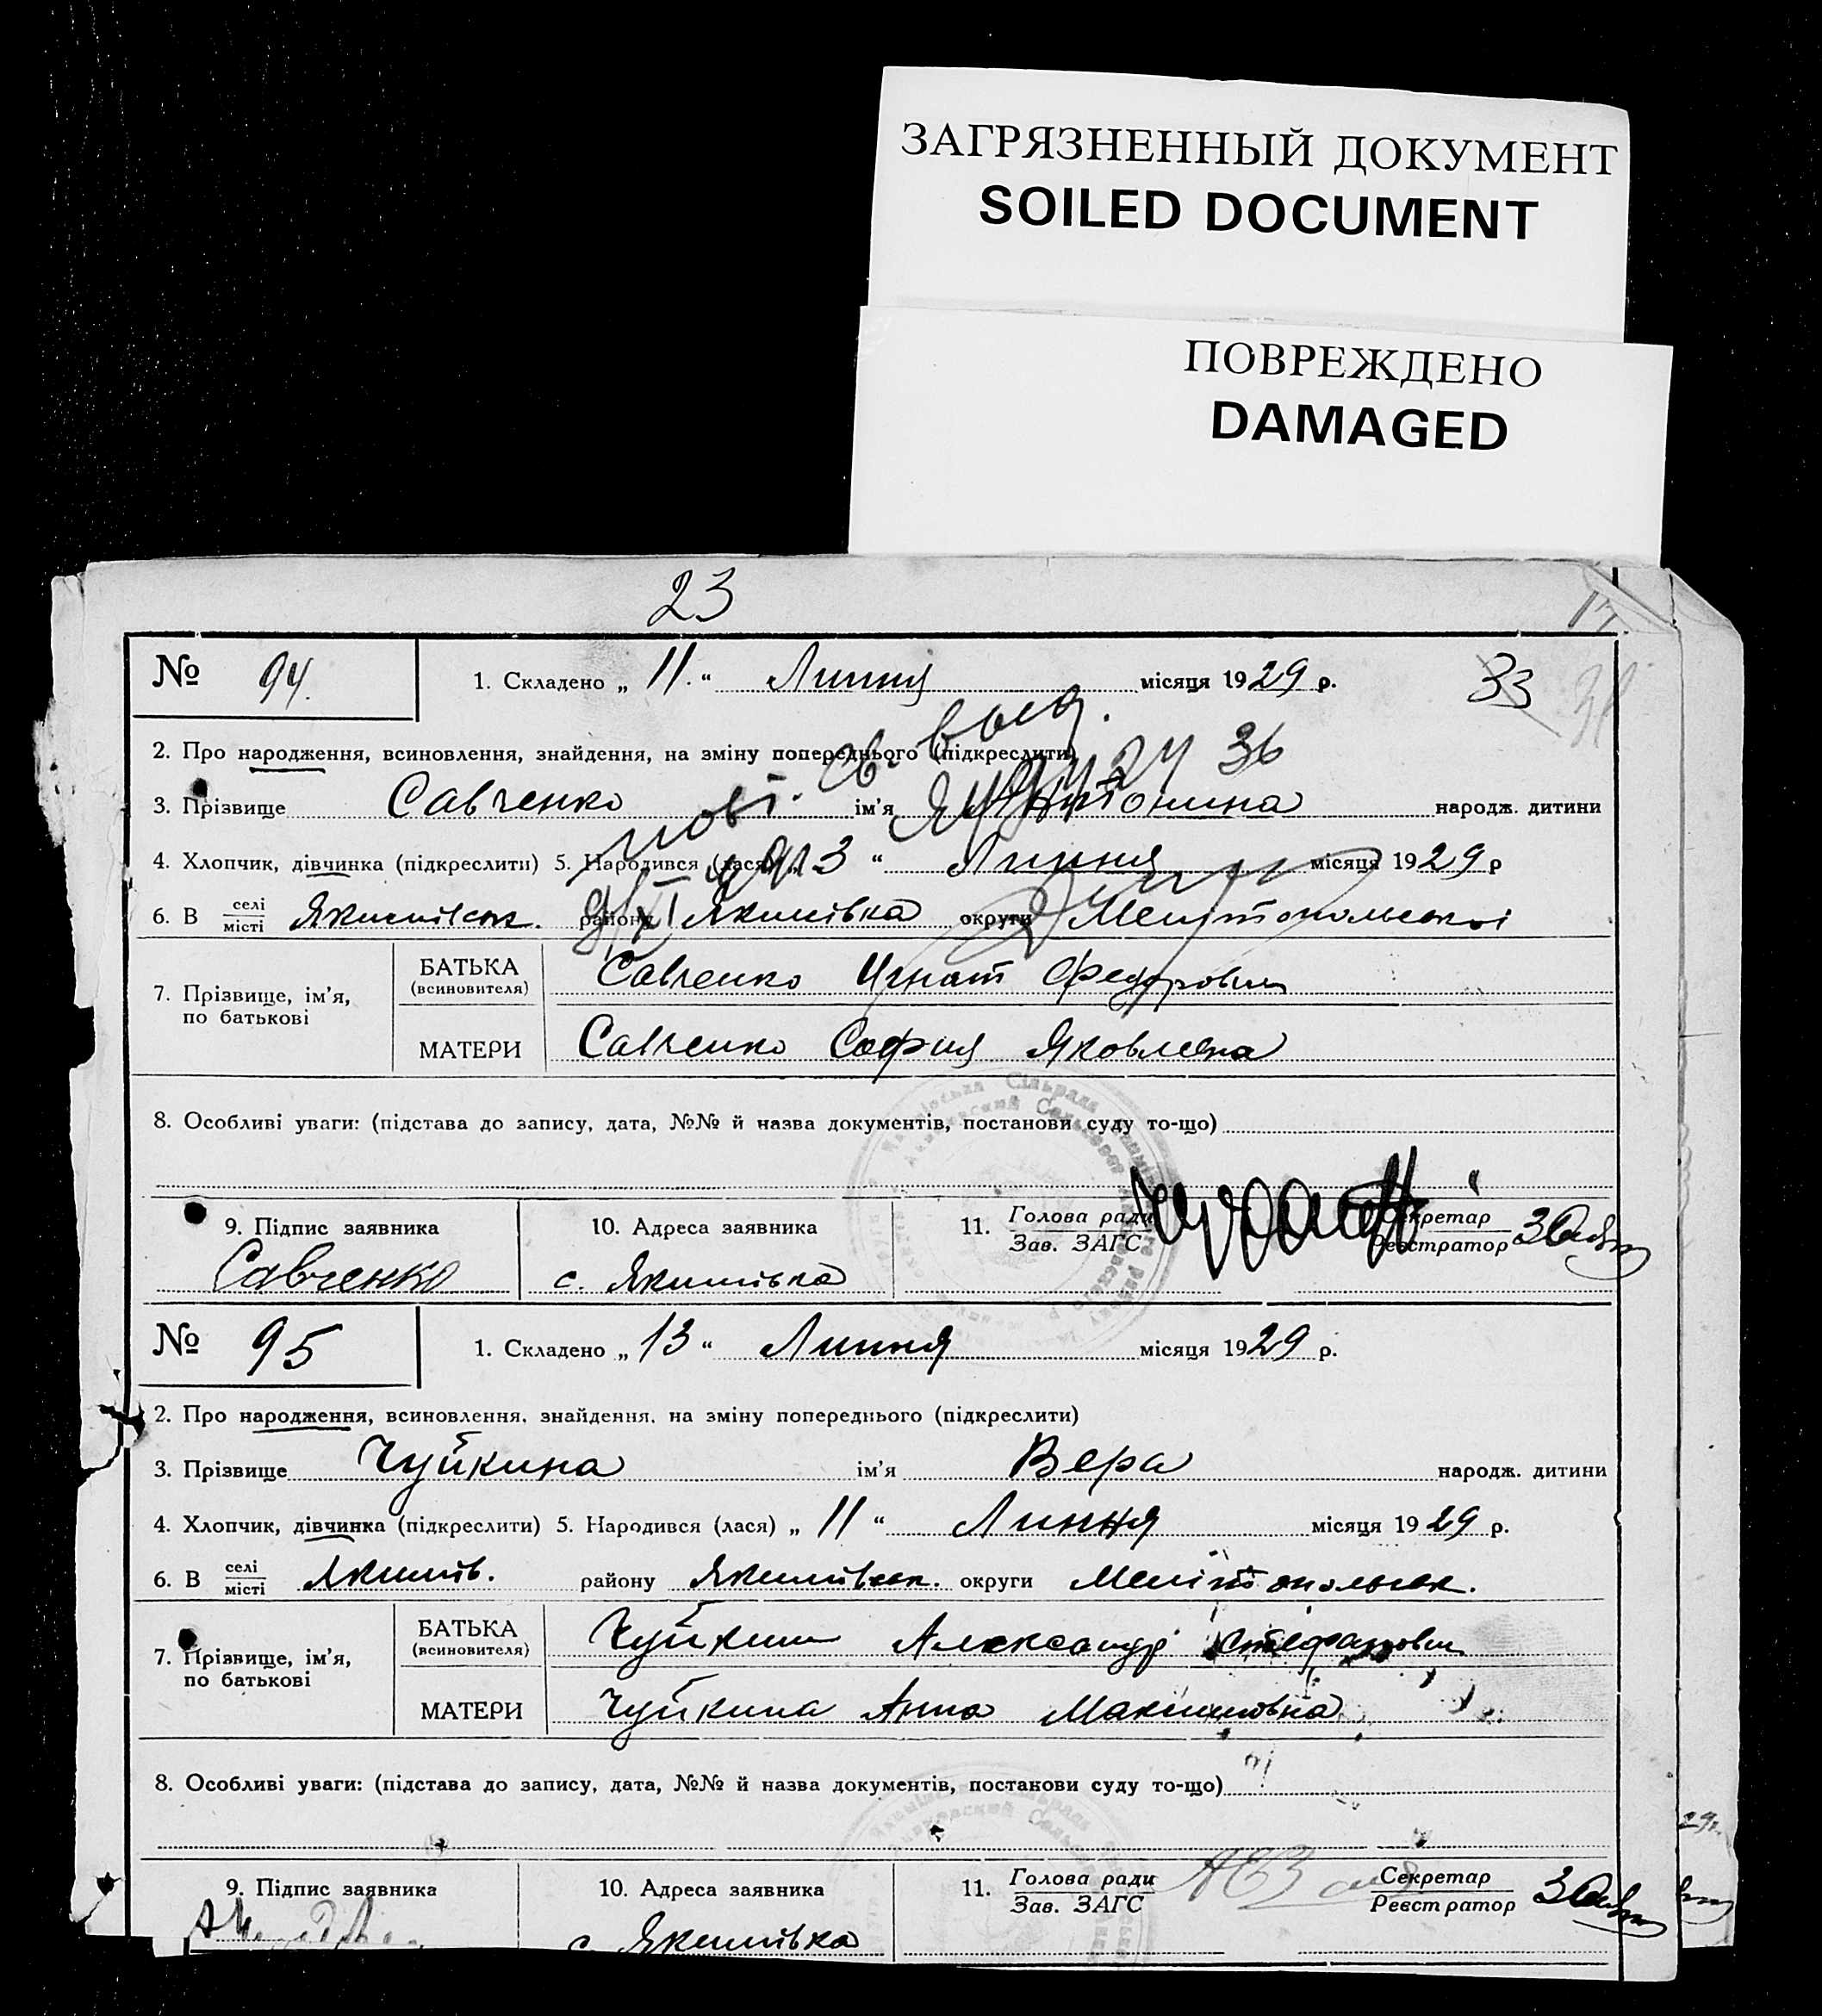 ЗАГРЯЗНЕННЫЙ ДОКУМЕНТ
SOILED DOCUMENT
ПОВРЕЖДЕНО
DAMAGED
23
№ 94. 1. Складено „ 11. “ Липня місяця 1929 р. 33
2. Про народження, всиновлення, знайдення, на зміну попереднього (підкреслити)
3. Прізвище Савченко ім’я Антонина народж. дитини
4. Хлопчик, дівчинка (підкреслити) 5. Народився (лася) „ 3 “ Липня місяця 1929 р
6. В селі місті Якимівськ. району Якимівка округи Мелітопольськоі
7. Прізвище, ім’я, по батькові
БАТЬКА (всиновителя) Савченко Игнат Федорович
МАТЕРИ Савченко София Яковлевна
8. Особливі уваги: (підстава до запису, дата, №№ й назва документів, постанови суду то-що)
9. Підпис заявника 10. Адреса заявника 11. Голова ради Зав. ЗАГС Секретар Реєстратор
Савченко с. Якимівка
№ 95 1. Складено „ 13 “ Липня місяця 1929 р.
2. Про народження, всиновлення, знайдення, на зміну попереднього (підкреслити)
3. Прізвище Чуйкина ім’я Вера народж. дитини
4. Хлопчик, дівчинка (підкреслити) 5. Народився (лася) „ 11 “ Липня місяця 1929 р.
6. В селі місті Якимів. району Якимівськ. округи Мелітопольськ.
7. Прізвище, ім’я, по батькові
БАТЬКА (всиновителя) Чуйкин Александр Стефанович
МАТЕРИ Чуйкина Анна Максимовна
8. Особливі уваги: (підстава до запису, дата, №№ й назва документів, постанови суду то-що)
9. Підпис заявника 10. Адреса заявника 11. Голова ради Зав. ЗАГС Секретар Реєстратор
с. Якимівка